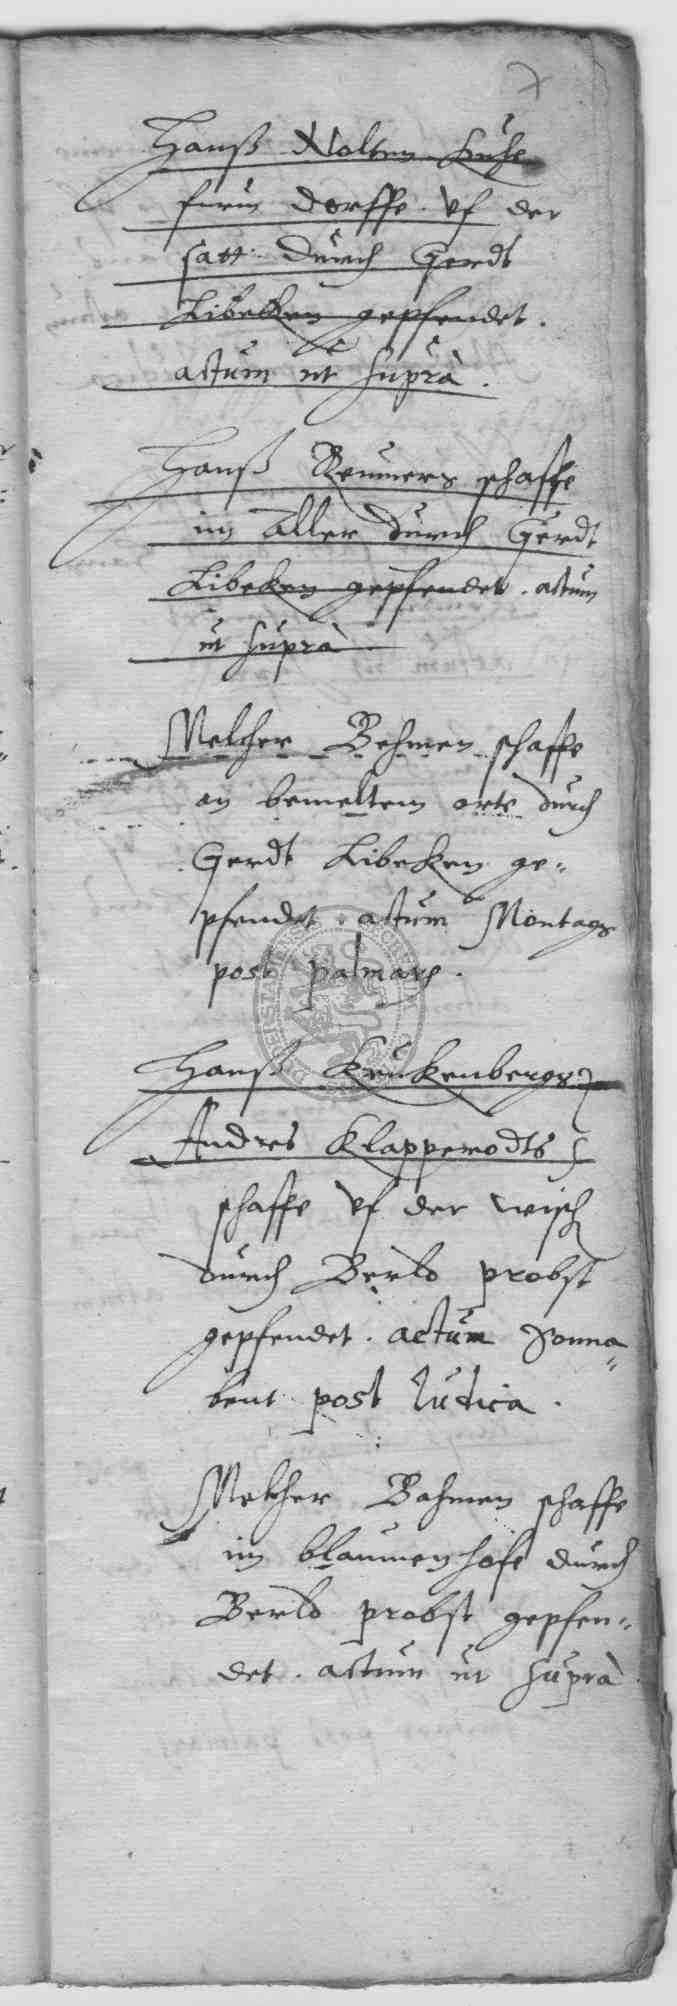 7
Hanß Nolten Kuhe
furm dorffe vf der
satt durch Gerdt
Libeken gepfendet.
actum ut suprà.
Hanß Remmers schaffe
im Aller durch Gerdt
Libeken gepfendet. actum
ut suprà
Melcher Behmen schaffe
an bemeltem orte durch
Gerdt Libeken ge=
pfendet. actum Montags
post palmarum.
Hanß Krukenbergs
Andres Klapperodts
schaffe vf der wisch
durch Berld probst
gepfendet. actum Sonna=
bent post Judica.
Melcher Bahmen schaffe
im blaumen hofe durch
Berld probst gepfen=
det. actum ut suprà